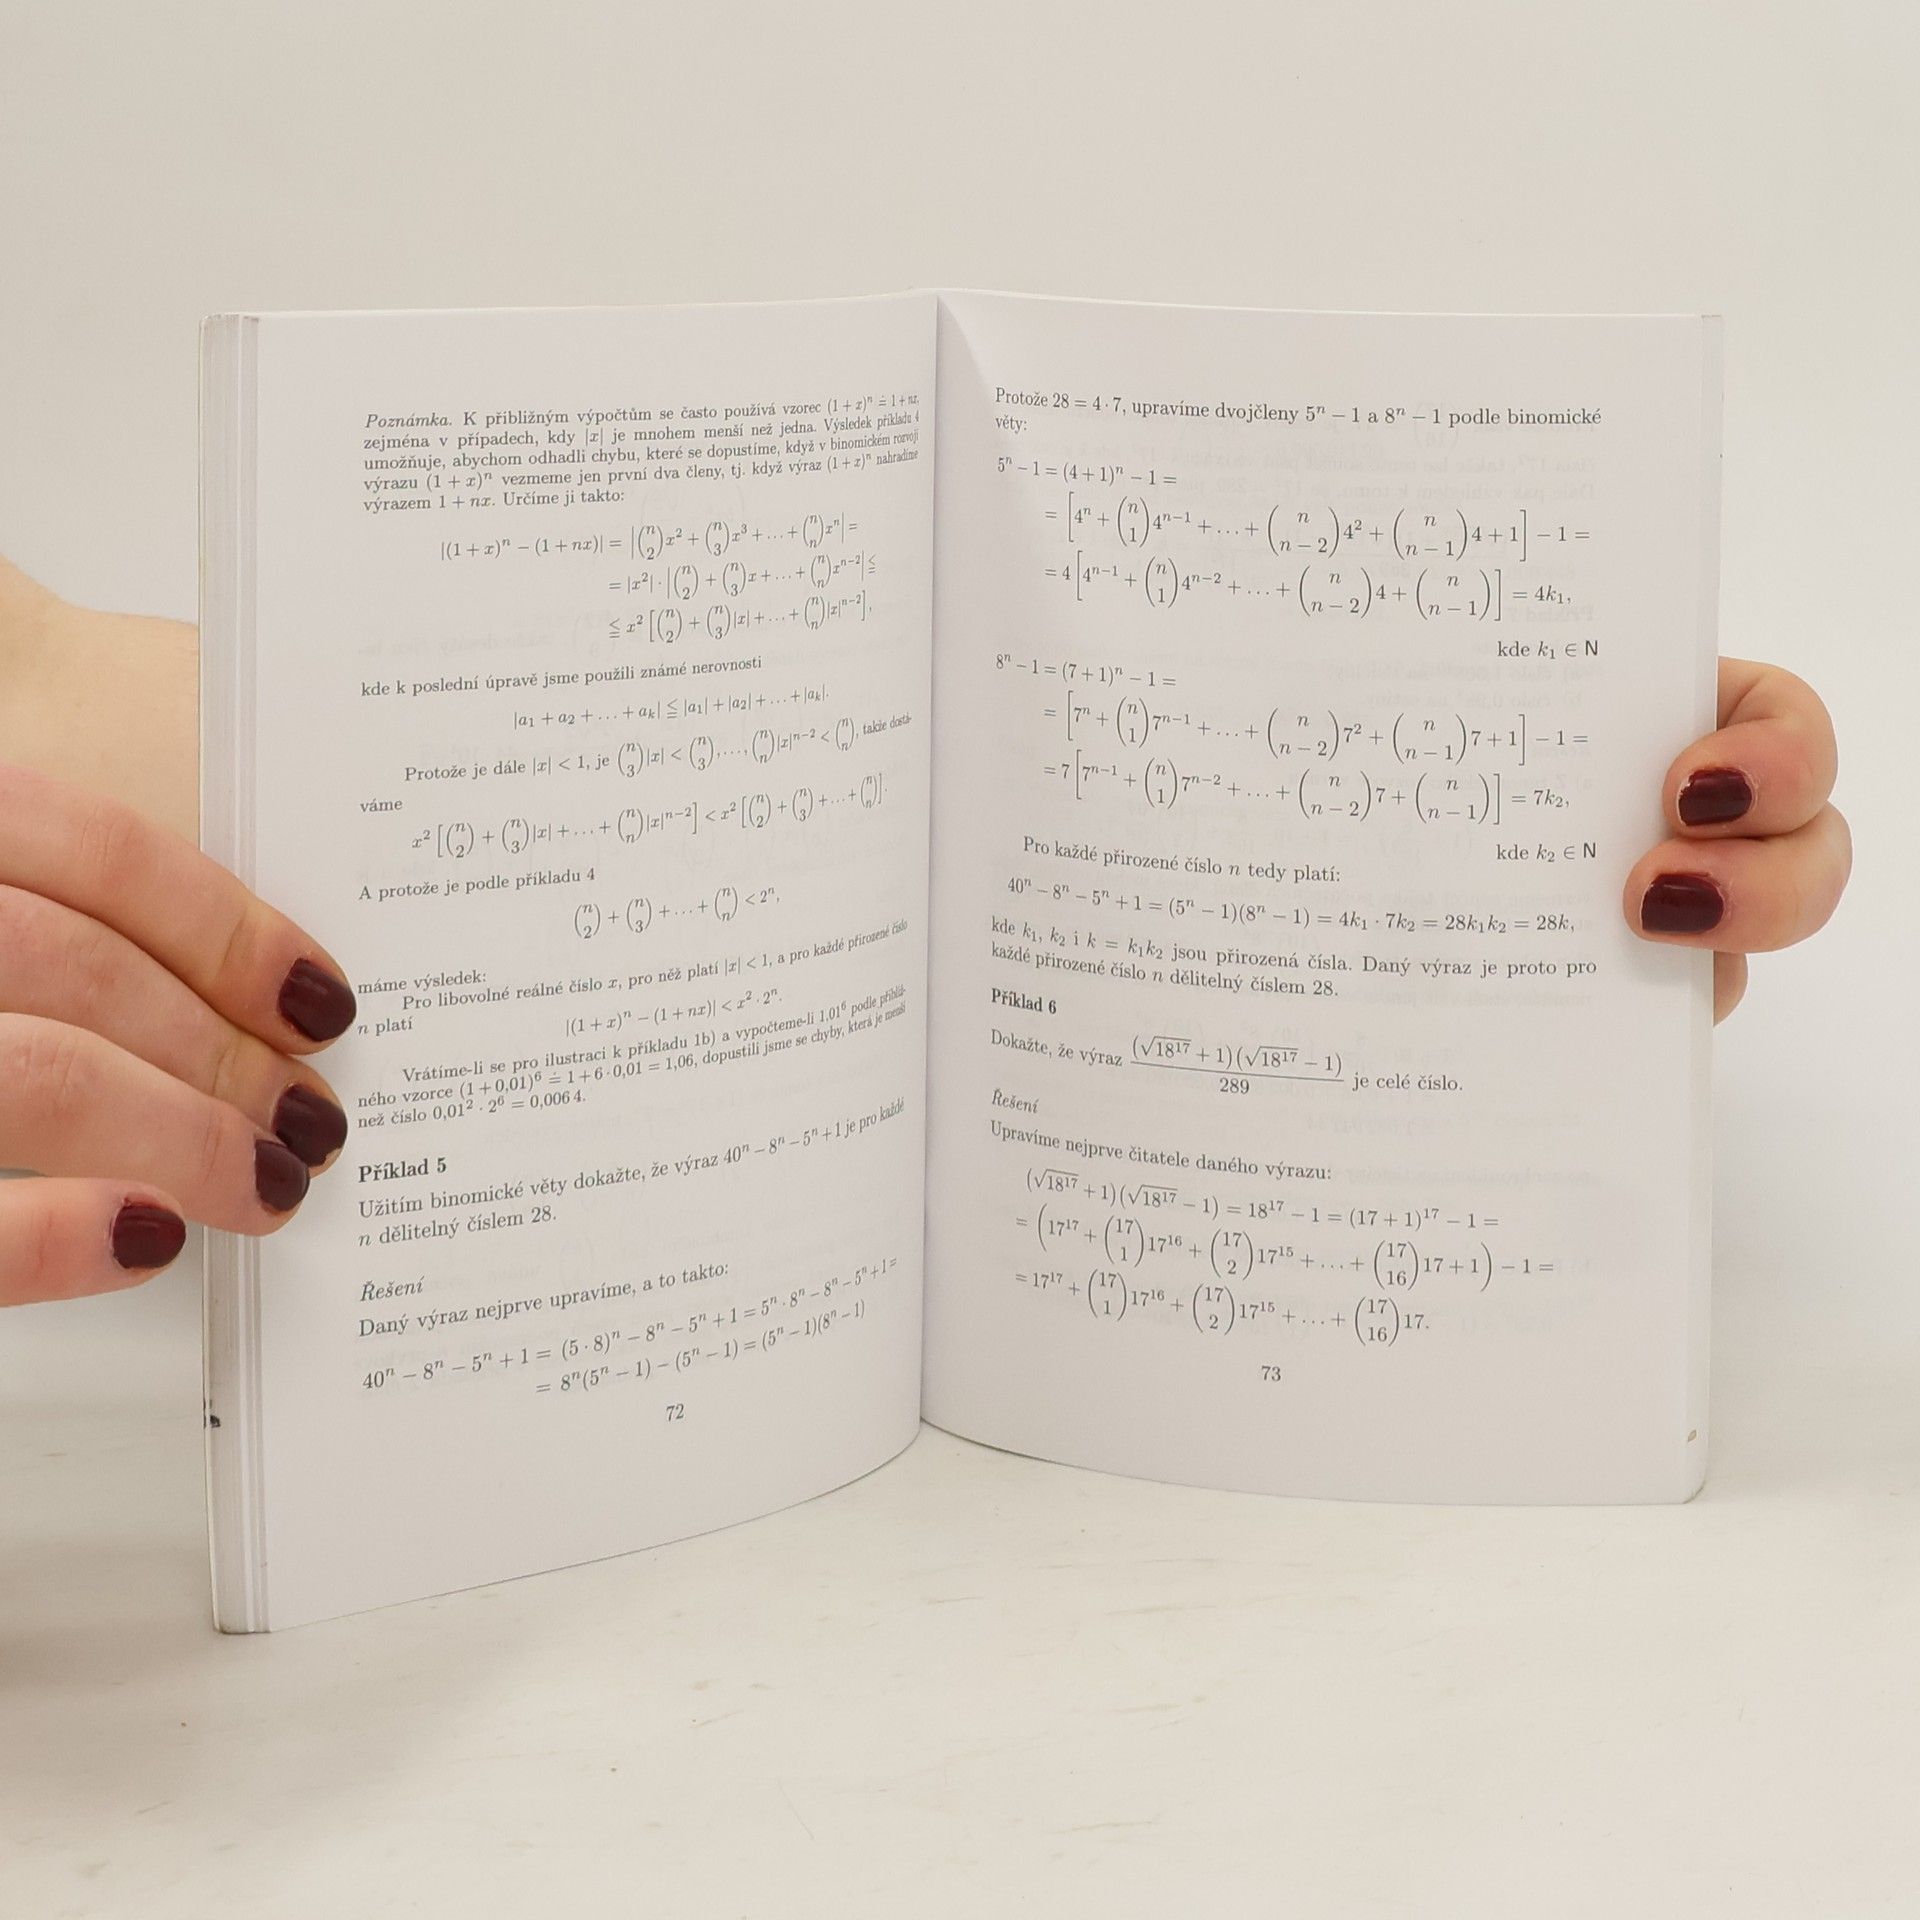 Poznámka. K přibližným výpočtům se často používá vzorec (1 + x)ⁿ ≐ 1 + nx,
zejména v případech, kdy |x| je mnohem menší než jedna. Výsledek příkladu 4
umožňuje, abychom odhadli chybu, které se dopustíme, když v binomickém rozvoji
výrazu (1 + x)ⁿ vezmeme jen první dva členy, tj. když výraz (1 + x)ⁿ nahradíme
výrazem 1 + nx. Určíme ji takto:
|(1 + x)ⁿ − (1 + nx)| = |(n 2)x² + (n 3)x³ + … + (n n)xⁿ| =
= |x²| · |(n 2) + (n 3)x + … + (n n)xⁿ⁻²| ≦
≦ x² [(n 2) + (n 3)|x| + … + (n n)|x|ⁿ⁻²],
kde k poslední úpravě jsme použili známé nerovnosti
|a₁ + a₂ + … + aₖ| ≦ |a₁| + |a₂| + … + |aₖ|.
Protože je dále |x| < 1, je (n 3)|x| < (n 3), …, (n n)|x|ⁿ⁻² < (n n), takže dostá-
váme
x² [(n 2) + (n 3)|x| + … + (n n)|x|ⁿ⁻²] < x² [(n 2) + (n 3) + … + (n n)].
A protože je podle příkladu 4
(n 2) + (n 3) + … + (n n) < 2ⁿ,
máme výsledek:
Pro libovolné reálné číslo x, pro něž platí |x| < 1, a pro každé přirozené číslo
n platí
|(1 + x)ⁿ − (1 + nx)| < x² · 2ⁿ.
Vrátíme-li se pro ilustraci k příkladu 1b) a vypočteme-li 1,01⁶ podle přibliž-
ného vzorce (1 + 0,01)⁶ ≐ 1 + 6 · 0,01 = 1,06, dopustili jsme se chyby, která je menší
než číslo 0,01² · 2⁶ = 0,006 4.
Příklad 5
Užitím binomické věty dokažte, že výraz 40ⁿ − 8ⁿ − 5ⁿ + 1 je pro každé
n dělitelný číslem 28.
Řešení
Daný výraz nejprve upravíme, a to takto:
40ⁿ − 8ⁿ − 5ⁿ + 1 = (5 · 8)ⁿ − 8ⁿ − 5ⁿ + 1 = 5ⁿ · 8ⁿ − 8ⁿ − 5ⁿ + 1 =
= 8ⁿ(5ⁿ − 1) − (5ⁿ − 1) = (5ⁿ − 1)(8ⁿ − 1)
72
Protože 28 = 4 · 7, upravíme dvojčleny 5ⁿ − 1 a 8ⁿ − 1 podle binomické
věty:
5ⁿ − 1 = (4 + 1)ⁿ − 1 =
= [4ⁿ + (n 1)4ⁿ⁻¹ + … + (n n − 2)4² + (n n − 1)4 + 1] − 1 =
= 4[4ⁿ⁻¹ + (n 1)4ⁿ⁻² + … + (n n − 2)4 + (n n − 1)] = 4k₁,
kde k₁ ∈ N
8ⁿ − 1 = (7 + 1)ⁿ − 1 =
= [7ⁿ + (n 1)7ⁿ⁻¹ + … + (n n − 2)7² + (n n − 1)7 + 1] − 1 =
= 7[7ⁿ⁻¹ + (n 1)7ⁿ⁻² + … + (n n − 2)7 + (n n − 1)] = 7k₂,
kde k₂ ∈ N
Pro každé přirozené číslo n tedy platí:
40ⁿ − 8ⁿ − 5ⁿ + 1 = (5ⁿ − 1)(8ⁿ − 1) = 4k₁ · 7k₂ = 28k₁k₂ = 28k,
kde k₁, k₂ i k = k₁k₂ jsou přirozená čísla. Daný výraz je proto pro
každé přirozené číslo n dělitelný číslem 28.
Příklad 6
Dokažte, že výraz (√18¹⁷ + 1)(√18¹⁷ − 1) / 289 je celé číslo.
Řešení
Upravíme nejprve čitatele daného výrazu:
(√18¹⁷ + 1)(√18¹⁷ − 1) = 18¹⁷ − 1 = (17 + 1)¹⁷ − 1 =
= (17¹⁷ + (17 1)17¹⁶ + (17 2)17¹⁵ + … + (17 16)17 + 1) − 1 =
= 17¹⁷ + (17 1)17¹⁶ + (17 2)17¹⁵ + … + (17 16)17.
73